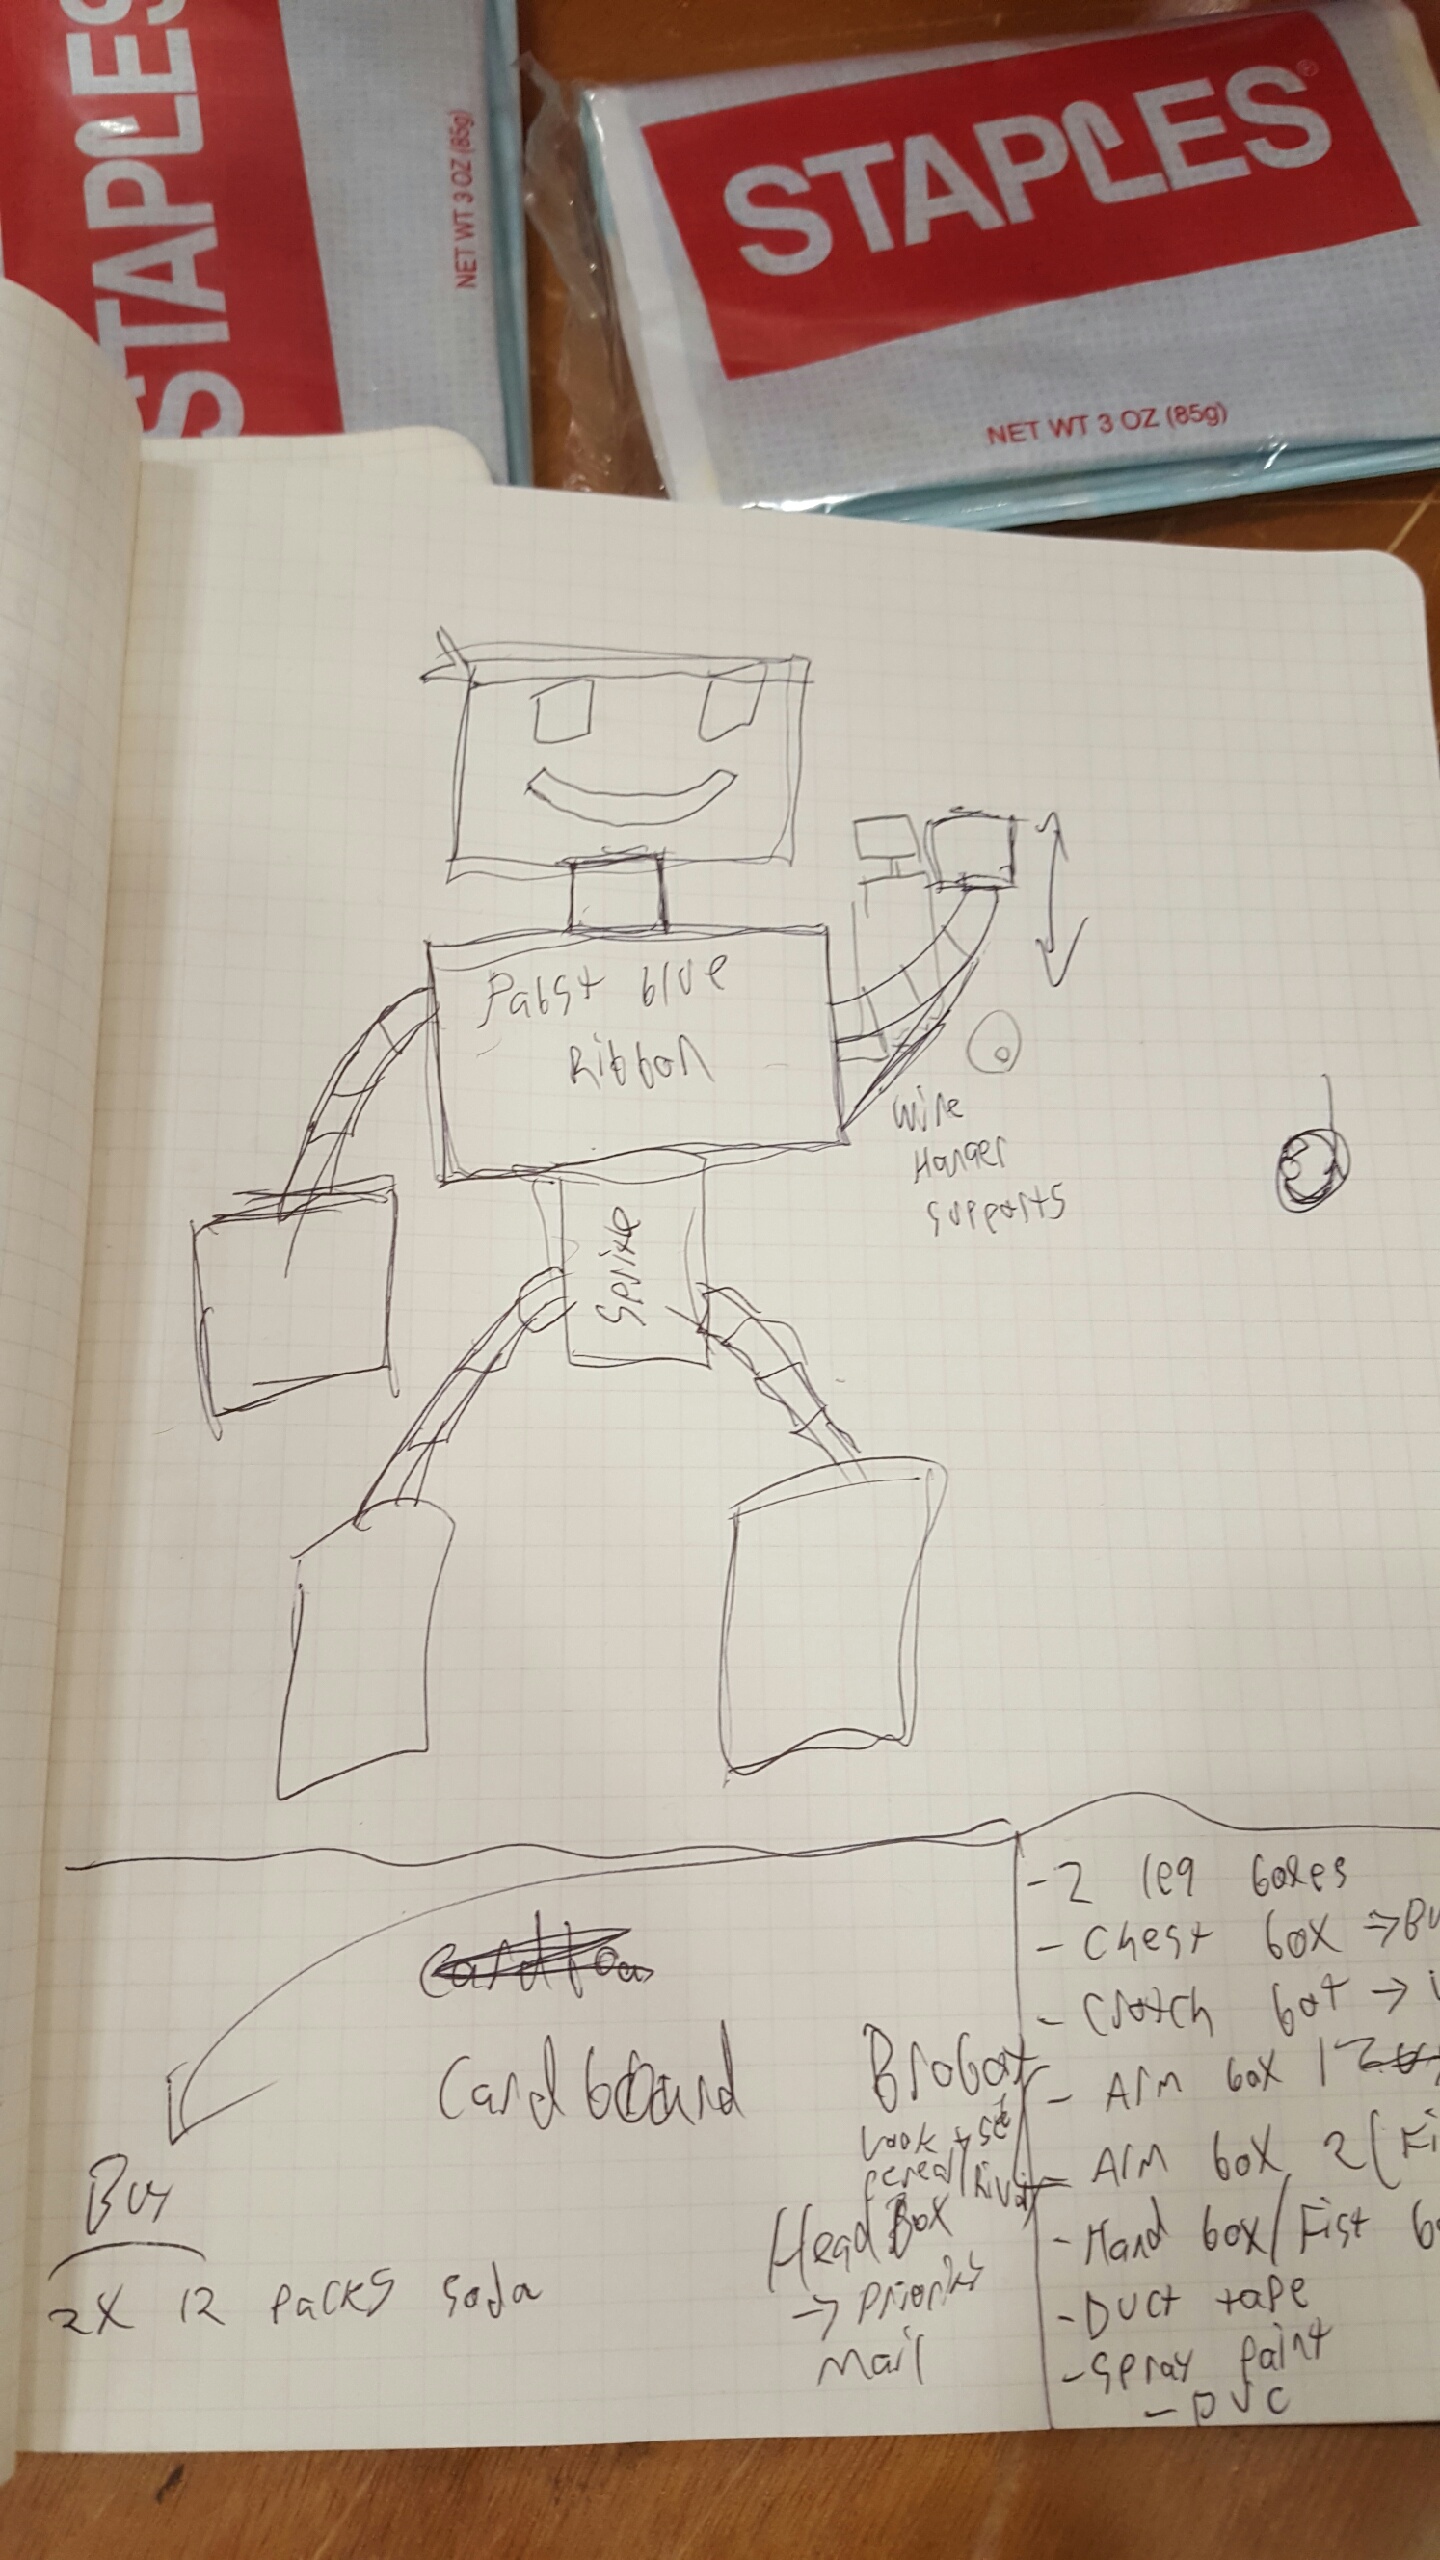 STAPLES
NET WT 3 OZ (85g)
STAPLES®
NET WT 3 OZ (85g)
Pabst blue
Ribbon
Wire
Hanger
supports
Sprite
Cardboard
Buy
2X 12 packs soda
Brobot
Head Box
→ Priority
Mail
- 2 leg boxes
- Chest box ⇒ Bu
- Crotch bot →
- Arm box 1
- Arm box 2 (Fi
- Hand box/Fist bo
- Duct tape
- Spray paint
- PVC